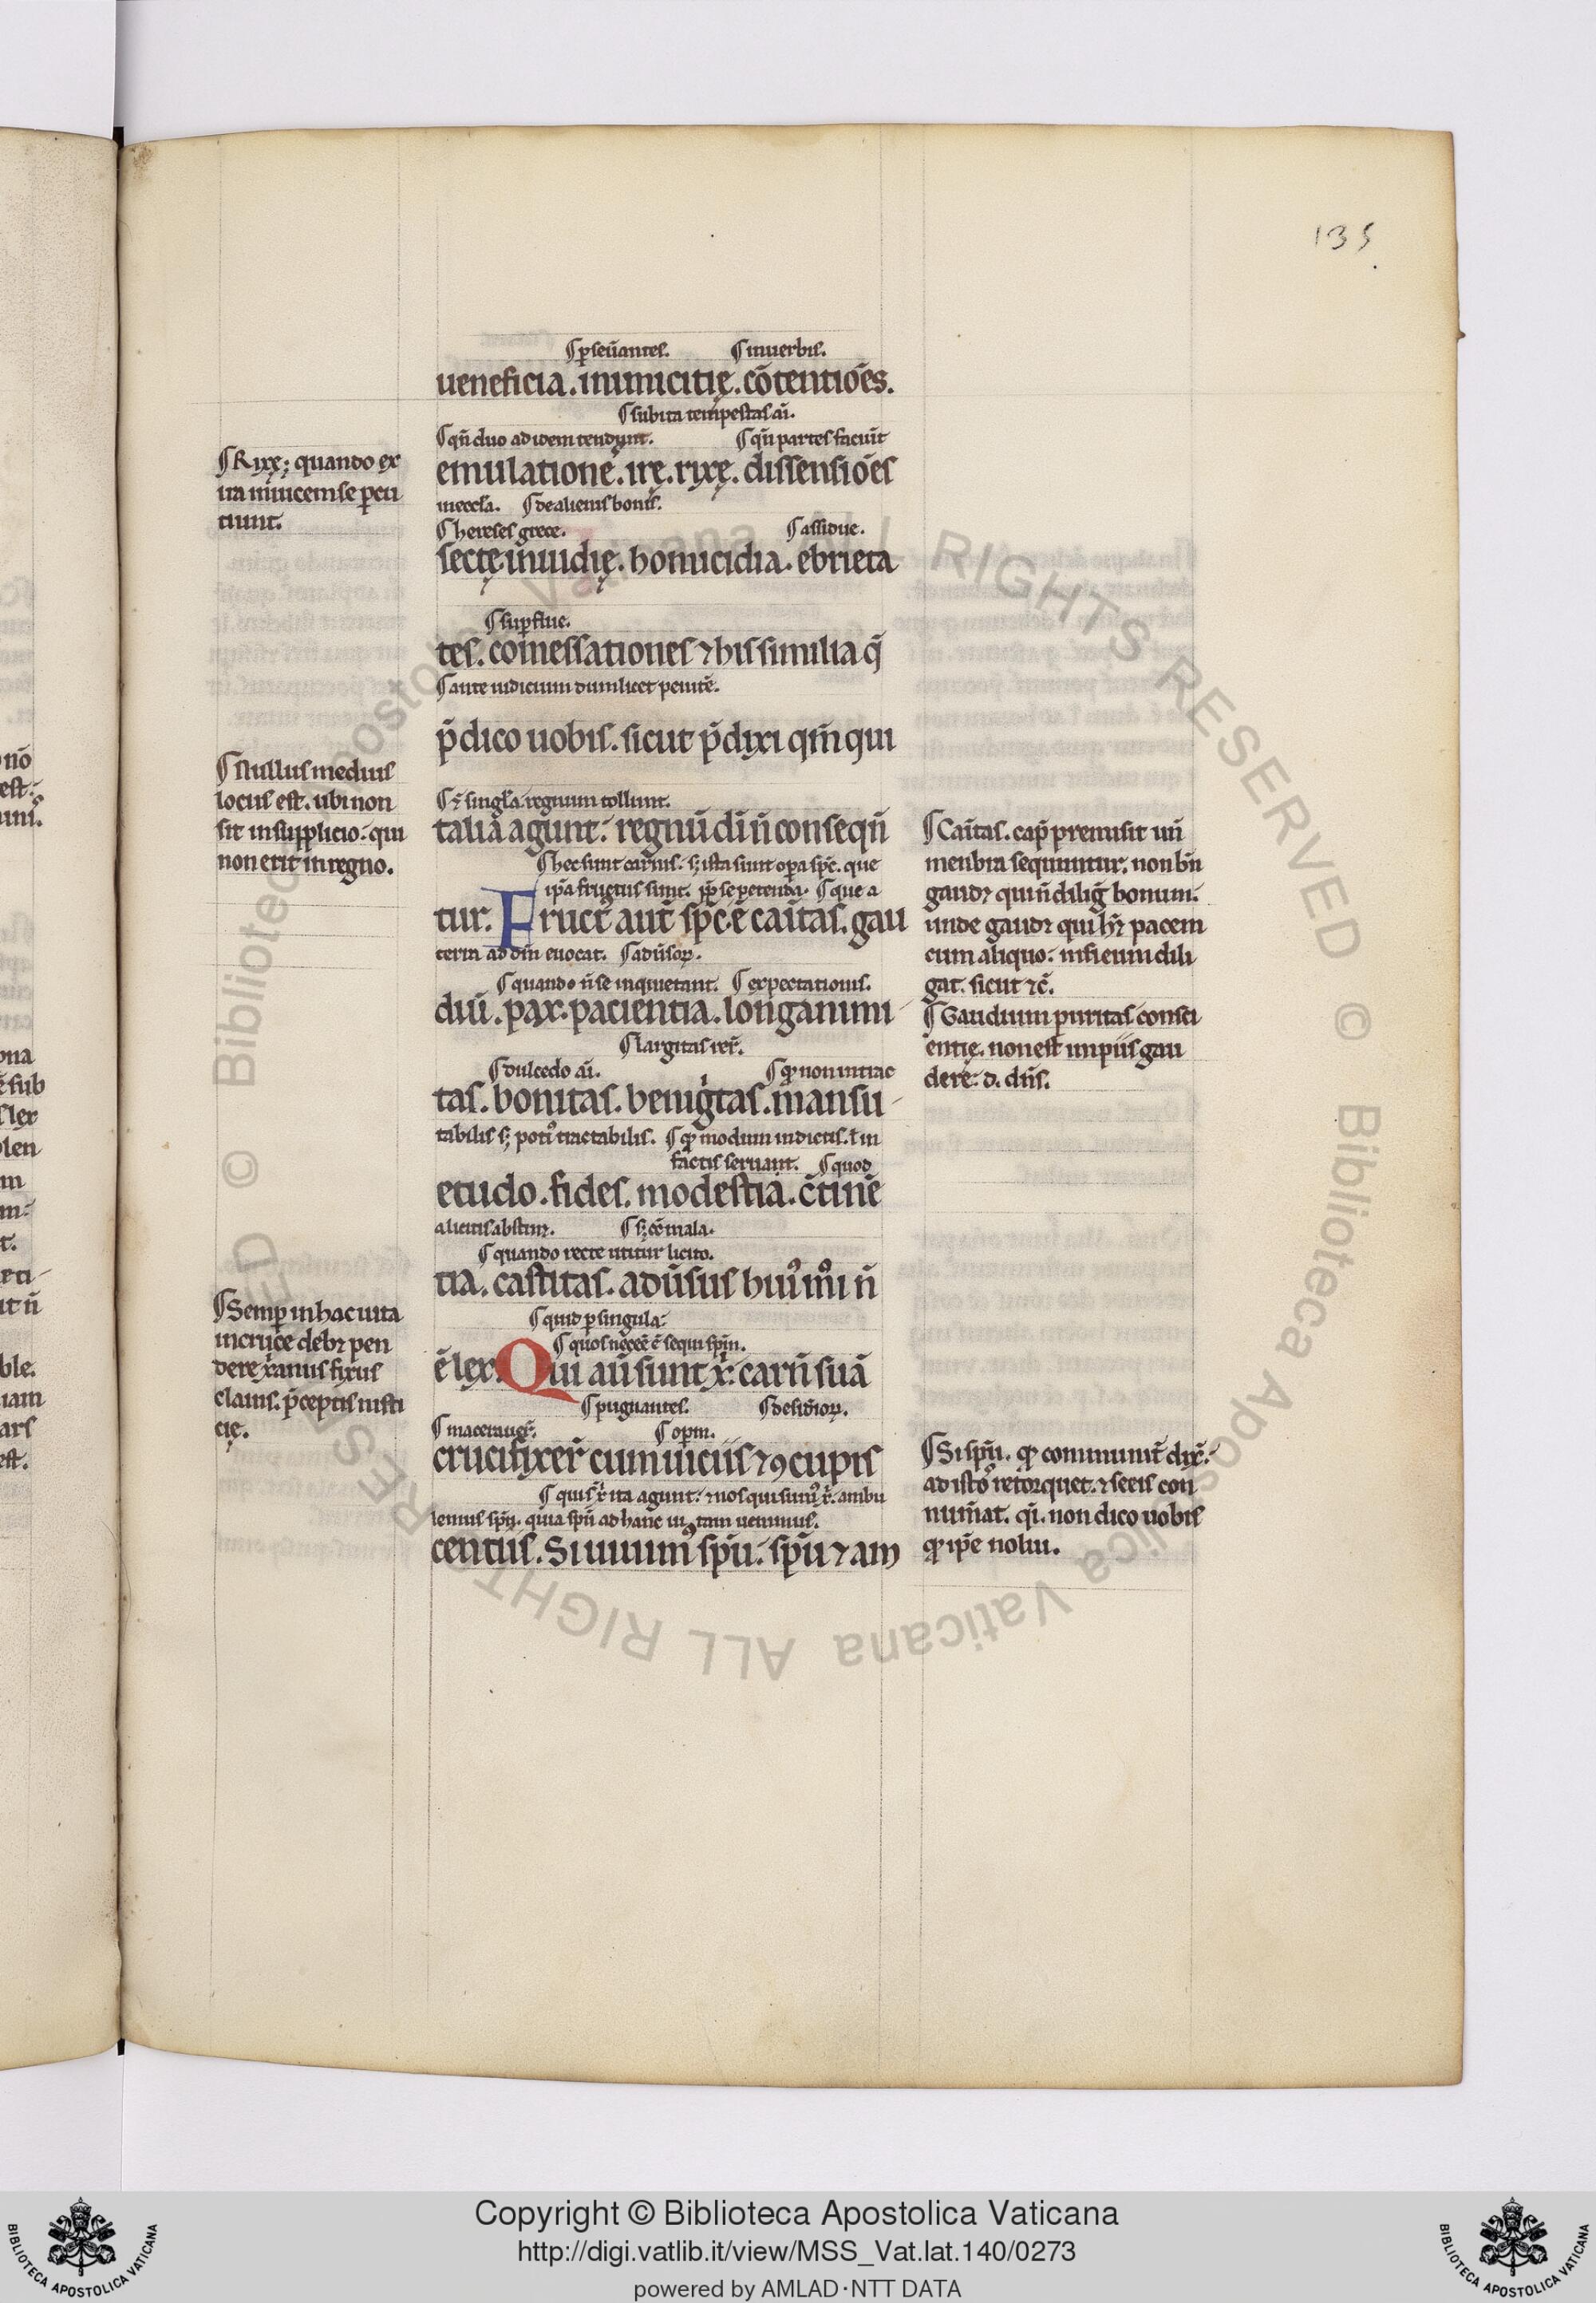 135
¶ p̱seūantes. ¶ inuerbis.
ueneficia. inimicitię. cōtentiōes.
¶ subita tempestas aı̄.
¶ qn̄ duo ad idem tendunt. ¶ qn̄ partes faciūt
emulationē. irę. rixę. dissensiōes
ineccl̄a. ¶ de alienis bonis.
¶ hereses grece. ¶ assidue.
sectę. inuidię. homicidia. ebrieta
¶ suꝑflue.
tes. comessationes ⁊ his similia q̄
¶ ante iudicium dum licet penitē.
p̄dico uobis. sicut p̄dixi qm̄ qui
¶ singl̄a regnum tollunt.
talia agunt. regnū dı̄ n̄ consequn̄
¶ hec sunt carnis. sꝫ ista sunt oꝑa sp̄c. que
ip̄a fructus sunt. ꝓpt̄ se petenda. ¶ que a
tur. Fruct᷒ aut̄ sp̄c ē car̄itas. gau
terra ad dn̄ euocat. ¶ adūsoꝝ.
¶ quando n̄ se inquietant. ¶ expectationis.
diū. pax. pacientia. longanimi
¶ largitas rer̄.
¶ dulcedo aı̄. ¶ qͥ non intrac
tas. bonitas. benigͥtas. mansu
tabilis sꝫ poti᷒ tractabilis. ¶ qͥ modum indictis. ł in
factis seruant. ¶ quod
etudo. fides. modestia. c̄tinē
alicuis abstinꝫ. ¶ sꝫ oē mala.
¶ quando recte utitur licito.
tia. castitas. adūsus hui᷒ mͦı n̄
¶ quid ꝑ singula.
¶ quos necee ē sequi sp̄m.
ē lex. Qui aū sunt xp̄. carn̄ suā
¶ pugnantes. ¶ desid̄ioꝝ.
¶ macerauer̄. ¶ opm.
crucifixer̄ cum uiciis ⁊ ꝯcupis
¶ qui s̄ xp̄ ita agunt. ⁊ nos qui sum᷒ xp̄. ambu
lemus sp̄u. quia sp̄u ad hanc uitam uenimus.
centiis. Si uiuim᷒ sp̄u. sp̄u ⁊ am
¶ Rixę; quando ex
ira inuicem se ꝑcu
tiunt.
¶ Nullus medius
locus est. ubi non
sit in supplicio. qui
non erit in regno.
¶ Semꝑ in hac uita
in cruce debꝫ pen
dere xp̄anus fixus
clauis. p̄ceptis iusti
cię.
¶ Car̄itas. cap̄ premisit un̄
menbra sequuntur. non bn̄
gaudꝫ qui n̄ diligͭ bonum.
unde gaudꝫ qui hꝫ pacem
cum aliquo. nisi eum dili
gat. sicut ⁊c̄.
¶ Gaudium puritas consci
entię. non est impiis gau
dere. d. dn̄s.
¶ Si sp̄u. qͥ communit̄ dix̄.
ad istos retorquet. ⁊ secis con
num̄at. qͥ. non dico uobis
qͥ ip̄e nolui.
Copyright © Biblioteca Apostolica Vaticana
http://digi.vatlib.it/view/MSS_Vat.lat.140/0273
powered by AMLAD·NTT DATA